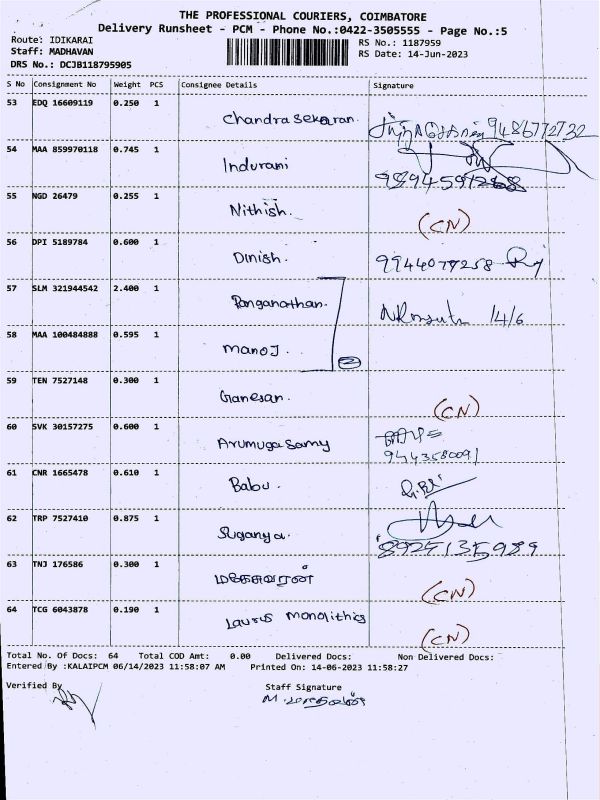 THE PROFESSIONAL COURIERS, COIMBATORE
Delivery Runsheet - PCM - Phone No.:0422-3505555 - Page No.:5
Route: IDIKARAI
RS No.: 1187959
Staff: MADHAVAN
RS Date: 14-Jun-2023
DRS No.: DCJB118795905
S No Consignment No Weight PCS Consignee Details Signature
53 EDQ 16609119 0.250 1 Chandrasekaran. 9486772732
54 MAA 859970118 0.745 1 Indurani
55 NGD 26479 0.255 1 Nithish. (CN)
56 DPI 5189784 0.600 1 Dinish.
57 SLM 321944542 2.400 1 Ranganathan. 14/6
58 MAA 100484888 0.595 1 Manoj. 2
59 TEN 7527148 0.300 1 Ganesan. (CN)
60 SVK 30157275 0.600 1 Arumugasamy
9443580091
61 CNR 1665478 0.610 1 Babu.
62 TRP 7527410 0.875 1 Suganya.
8925135989
63 TNJ 176586 0.300 1 மகேசுவரன் (CN)
64 TCG 6043878 0.190 1 Laurus Monolithics (CN)
Total No. Of Docs: 64 Total COD Amt: 0.00 Delivered Docs: Non Delivered Docs:
Entered By :KALAIPCM 06/14/2023 11:58:07 AM Printed On: 14-06-2023 11:58:27
Verified By
Staff Signature